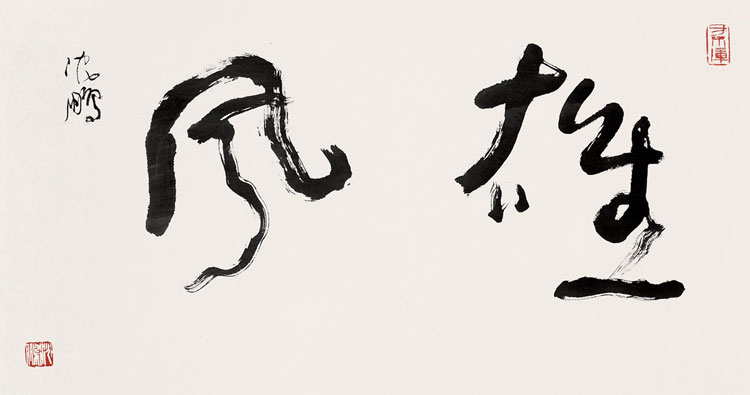 雄风
沈鹏